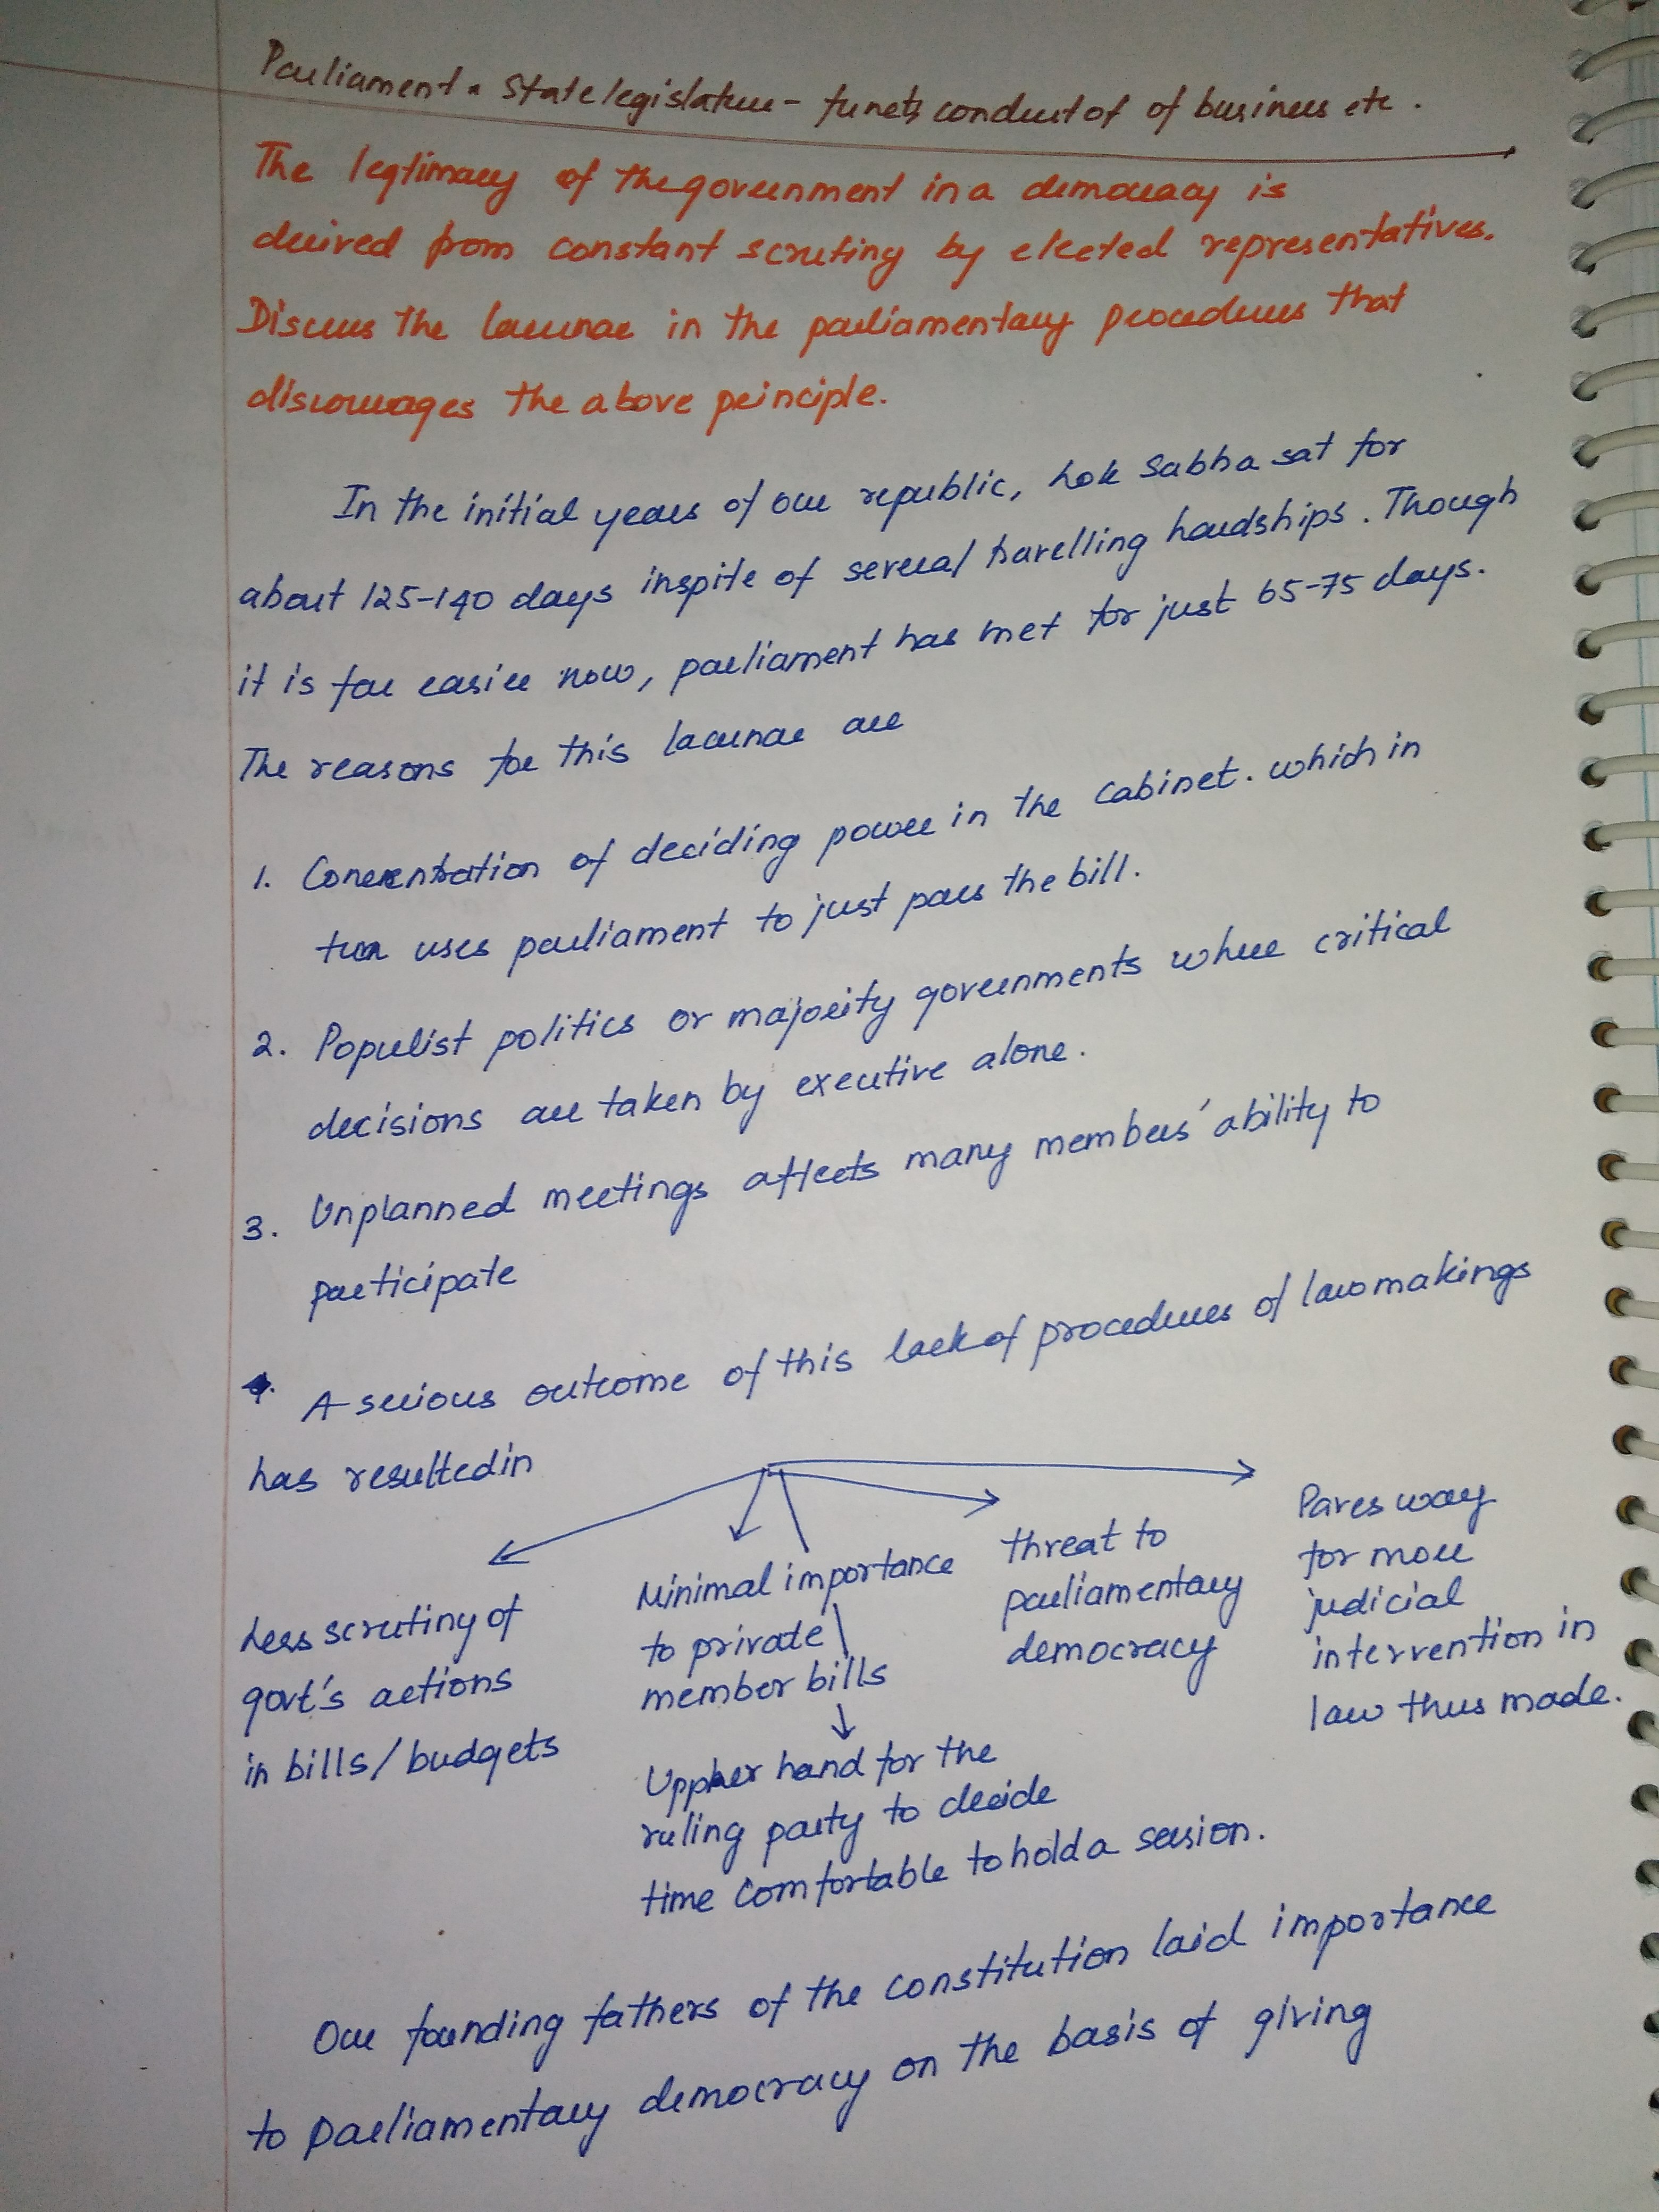 Parliament & State legislature - functs conduct of of business etc.
The legtimacy of the government in a democracy is
derived from constant scrutiny by elected representatives.
Discuss the lacunae in the parliamentary procedures that
discourages the above principle.
In the initial years of our republic, Lok Sabha sat for
about 125-140 days inspite of several travelling hardships. Though
it is far easier now, parliament has met for just 65-75 days.
The reasons for this lacunae are
1. Concentration of deciding power in the cabinet. which in
turn uses parliament to just pass the bill.
2. Populist politics or majority governments where critical
decisions are taken by executive alone.
3. Unplanned meetings affects many members' ability to
participate
A serious outcome of this lack of procedures of lawmakings
has resulted in
Less scrutiny of
govt's actions
in bills/budgets
Minimal importance
to private
member bills
Uppher hand for the
ruling party to decide
time comfortable to hold a session.
threat to
parliamentary
democracy
Paves way
for more
judicial
intervention in
law thus made.
Our founding fathers of the constitution laid importance
to parliamentary democracy on the basis of giving